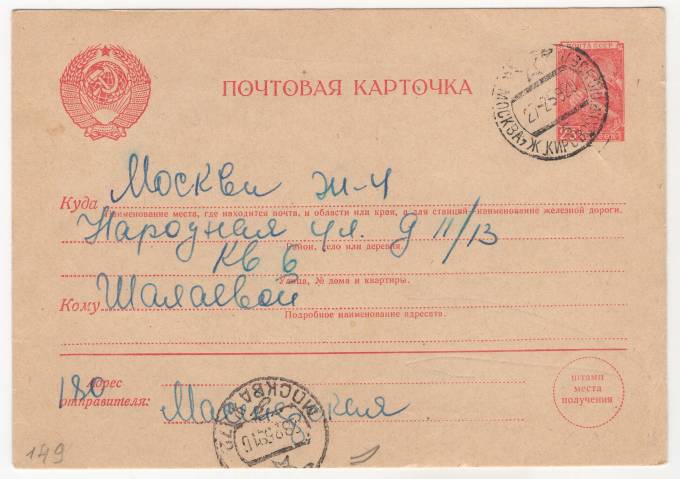 ПОЧТОВАЯ КАРТОЧКА
ПОЧТА СССР
МОСКВА, Ж КИРОВ
Куда Москва ж-4
Наименование места, где находится почта, и области или края, а для станций—наименование железной дороги.
Народная ул. д 11/13
Район, село или деревня.
кв 6
Улица, № дома и квартиры.
Кому Шалаевой
Подробное наименование адресата.
180
Адрес
отправителя:
МОСКВА
штамп
места
получения
149